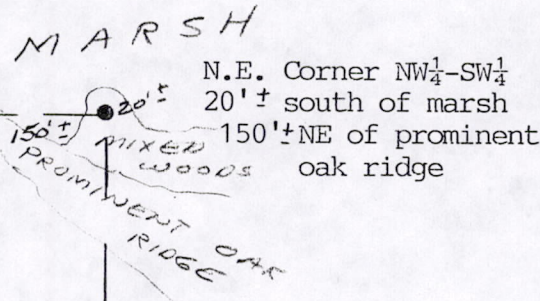 MARSH
N.E. Corner NW¼-SW¼
20'± south of marsh
150'± NE of prominent
oak ridge
20'±
150'±
MIXED
WOODS
PROMINENT OAK
RIDGE